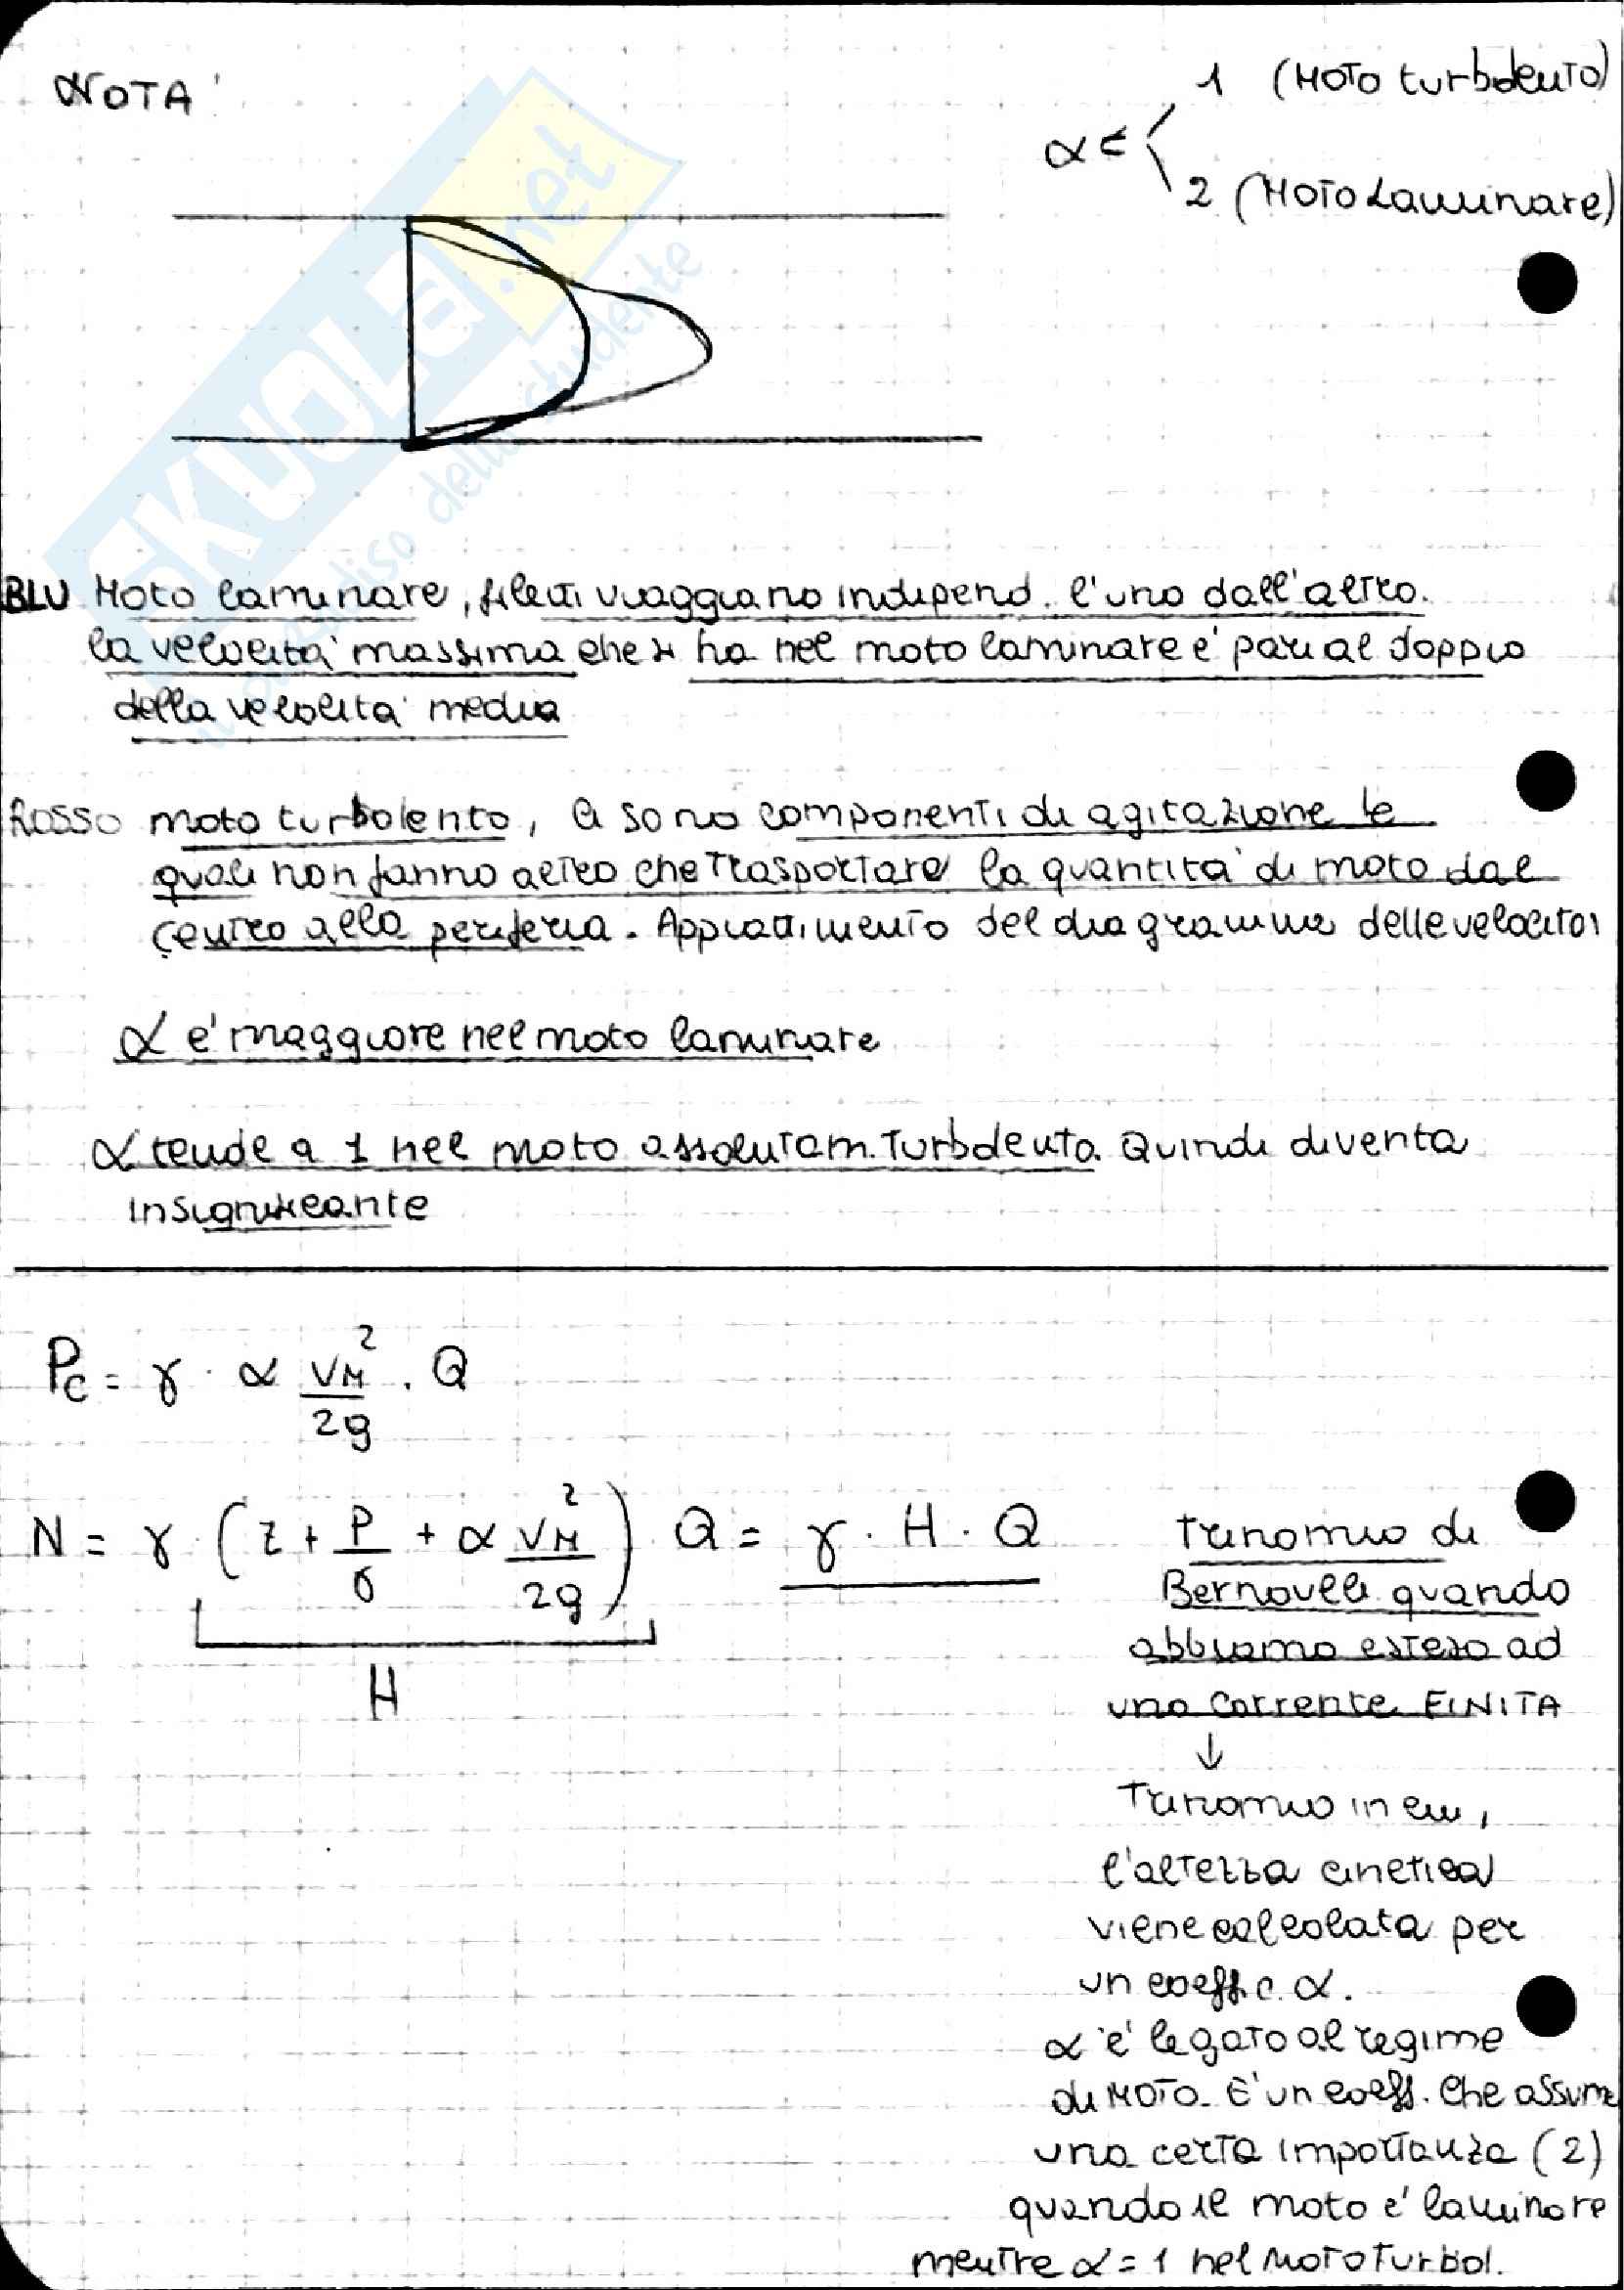 NOTA
α ∈ < 1 (MOTO turbolento)
2 (MOTO Laminare)
SKUOLA.net
il paradiso dello studente
BLU Moto laminare, filetti viaggiano independ. l'uno dall'altro.
la velocità massima che si ha nel moto laminare e' pari al doppio
della velocità media
Rosso moto turbolento, ci sono componenti di agitazione le
quali non fanno altro che trasportare la quantità di moto dal
centro alla periferia. Appiattimento del diagramma delle velocità
α e' maggiore nel moto laminare
α tende a 1 nel moto assolutam. turbolento. Quindi diventa
insignificante
Pc = γ · α VM²/2g · Q
N = γ (z + P/γ + α VM²/2g) Q = γ · H · Q
H
Trinomio di
Bernoulli quando
abbiamo esteso ad
una corrente FINITA
↓
Trinomio in cui,
l'altezza cinetica
viene calcolata per
un coeffic. α.
α e' legato al regime
di MOTO. E' un coeff. che assume
una certa importanza (2)
quando il moto e' laminare
mentre α = 1 nel MOTO Turbol.